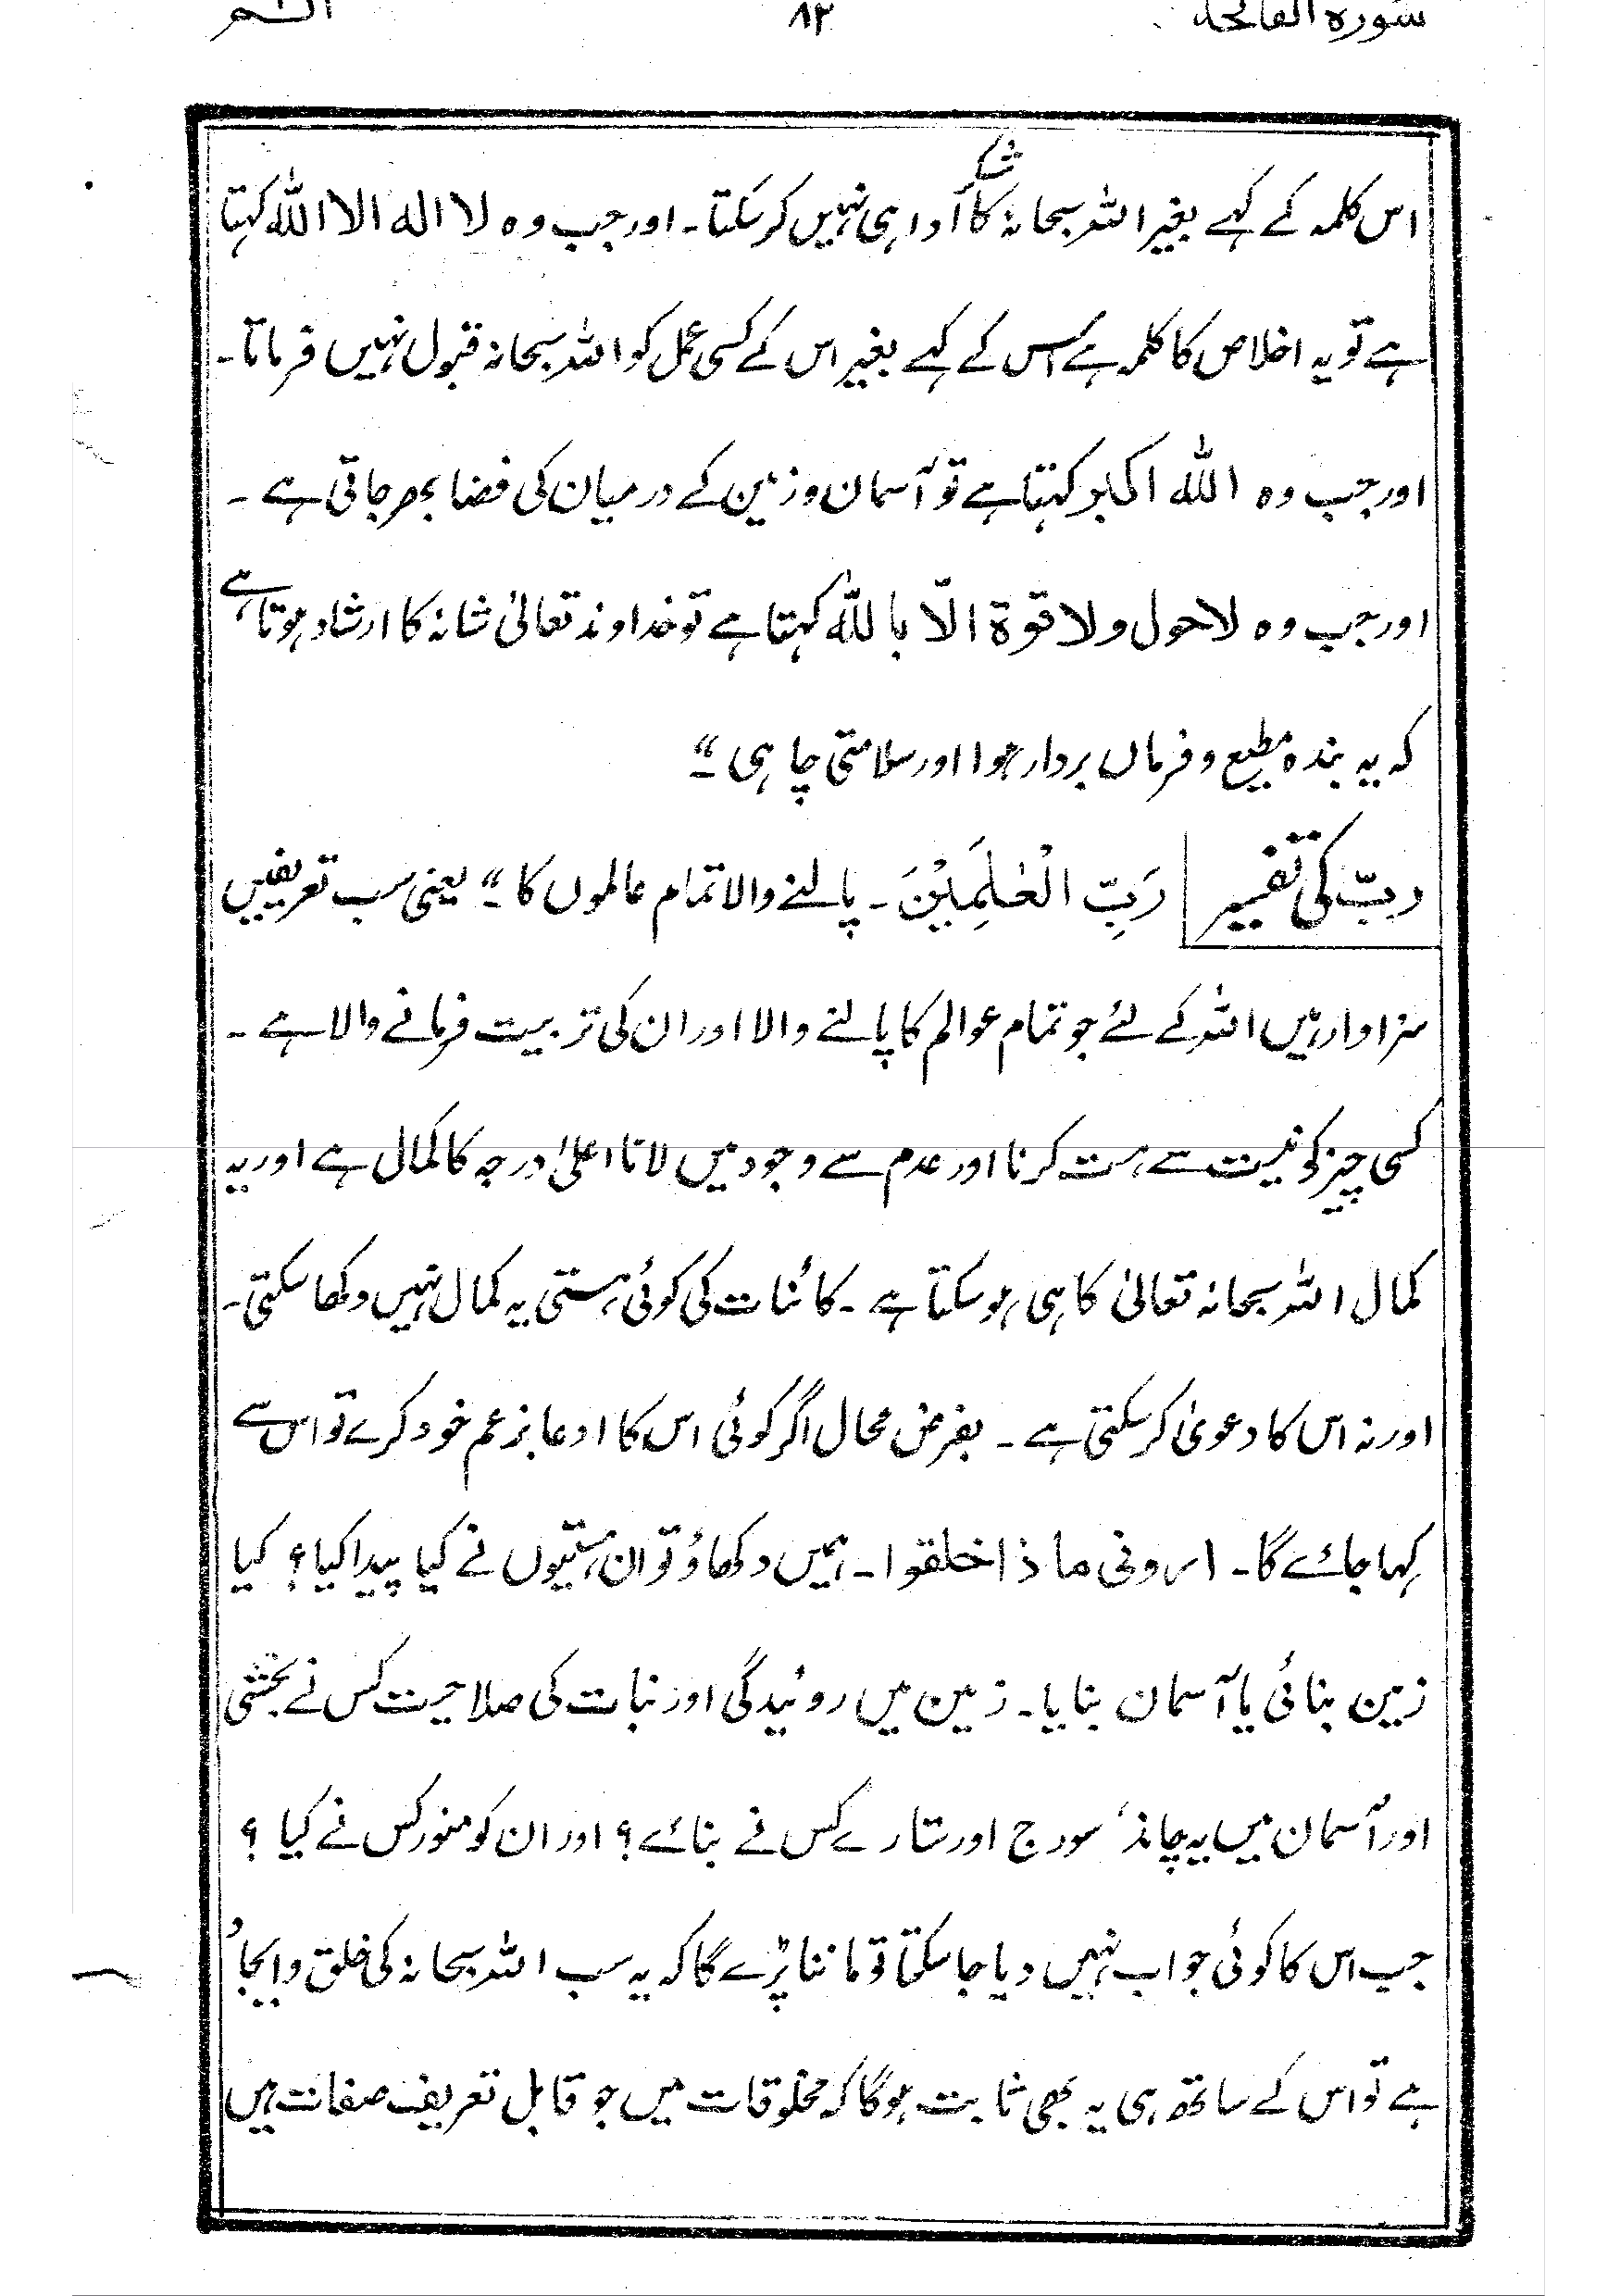 سورہ الفاتحہ ۸۲ الٓــمّ
اس کلمہ کے کہے بغیر اللہ سبحانہ کا شکر ادا ہی نہیں کر سکتا۔ اور جب وہ لا الہ الا اللہ کہتا
ہے تو یہ اخلاص کا کلمہ ہے اس کے کہے بغیر اس کے کسی عمل کو اللہ سبحانہ قبول نہیں فرماتا۔
اور جب وہ اللہ اکبر کہتا ہے تو آسمان و زمین کے درمیان کی فضا بھر جاتی ہے۔
اور جب وہ لاحول ولا قوۃ الّا باللہ کہتا ہے تو خداوند تعالیٰ شانہ کا ارشاد ہوتا ہے
کہ یہ بندہ مطیع و فرماں بردار ہوا اور سلامتی چاہی۔“
ربّ کی تفسیر رَبِّ الْعٰلَمِیْنَ۔ پالنے والا تمام عالموں کا۔“ یعنی سب تعریفیں
سزاوار ہیں اللہ کے لئے جو تمام عوالم کا پالنے والا اور ان کی تربیت فرمانے والا ہے۔
کسی چیز کو نیست سے ہست کرنا اور عدم سے وجود میں لانا اعلیٰ درجہ کا کمال ہے اور یہ
کمال اللہ سبحانہ تعالیٰ کا ہی ہو سکتا ہے۔ کائنات کی کوئی ہستی یہ کمال نہیں دکھا سکتی۔
اور نہ اس کا دعویٰ کر سکتی ہے۔ بفرض محال اگر کوئی اس کا ادعا بزعم خود کرے تو اس سے
کہا جائے گا۔ ارونی ماذا خلقوا۔ ہمیں دکھاؤ تو ان ہستیوں نے کیا پیدا کیا؟ کیا
زمین بنائی یا آسمان بنایا۔ زمین میں روئیدگی اور نبات کی صلاحیت کس نے بخشی
اور آسمان میں یہ چاند، سورج اور ستارے کس نے بنائے؟ اور ان کو منور کس نے کیا؟
جب اس کا کوئی جواب نہیں دیا جا سکتا تو ماننا پڑے گا کہ یہ سب اللہ سبحانہ کی خلق و ایجاد
ہے تو اس کے ساتھ ہی یہ بھی ثابت ہوگا کہ مخلوقات میں جو قابل تعریف صفات ہیں